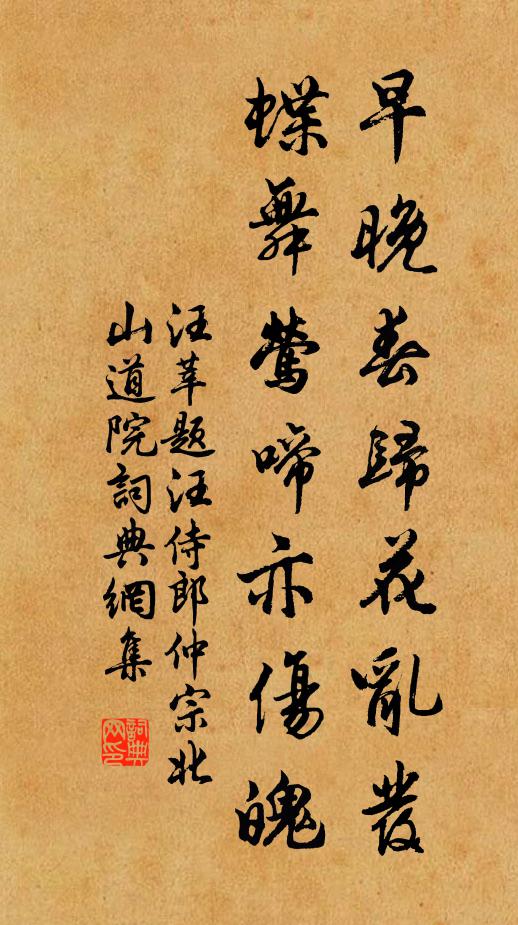 早晚春歸花亂發
蝶舞鶯啼亦傷魄
汪莘題汪侍郎仲宗北
山道院詞典網集
詞典网印